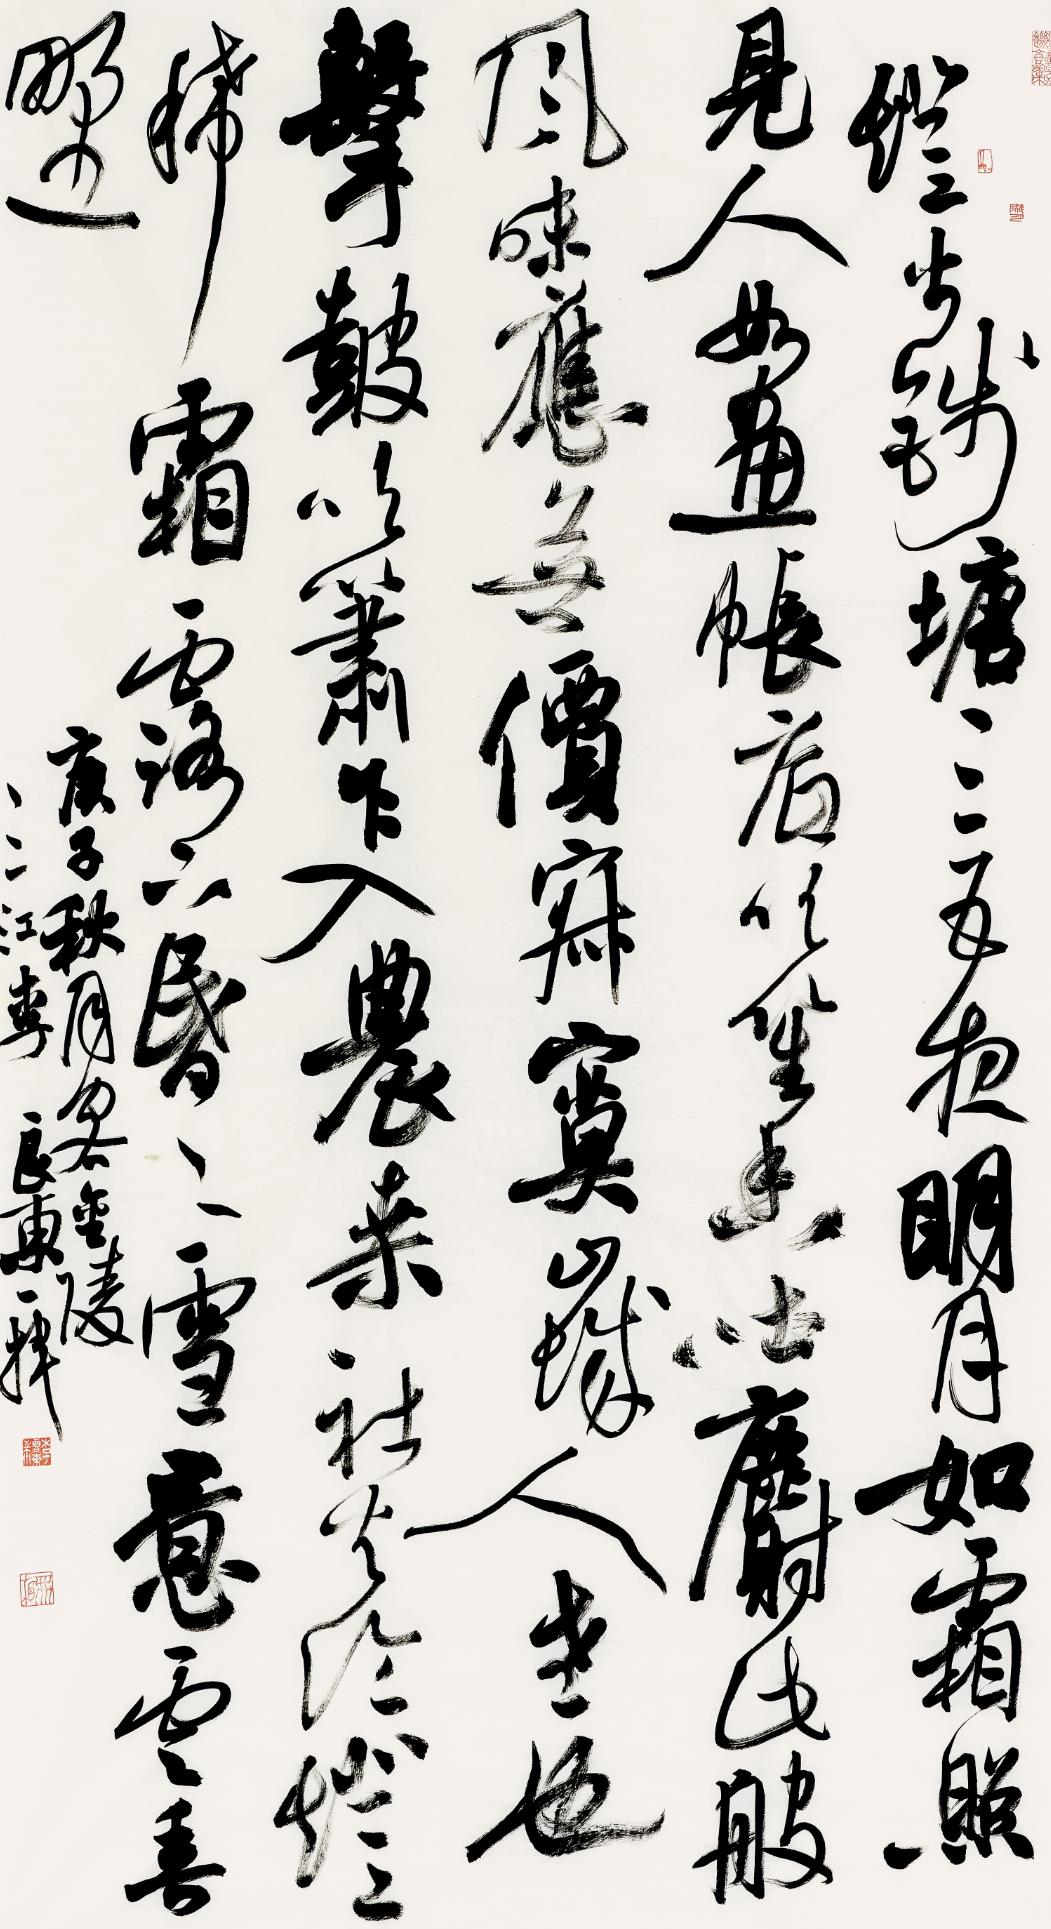 燈火錢塘三五夜明月如霜照
見人如畫帳底吹笙香吐麝此般
風味應無價寂寞山城人老也
擊鼓吹簫乍入農桑社火冷燈
稀霜露下昏々雪意雲垂
野
庚子秋月客金陵
三江李良東一揮